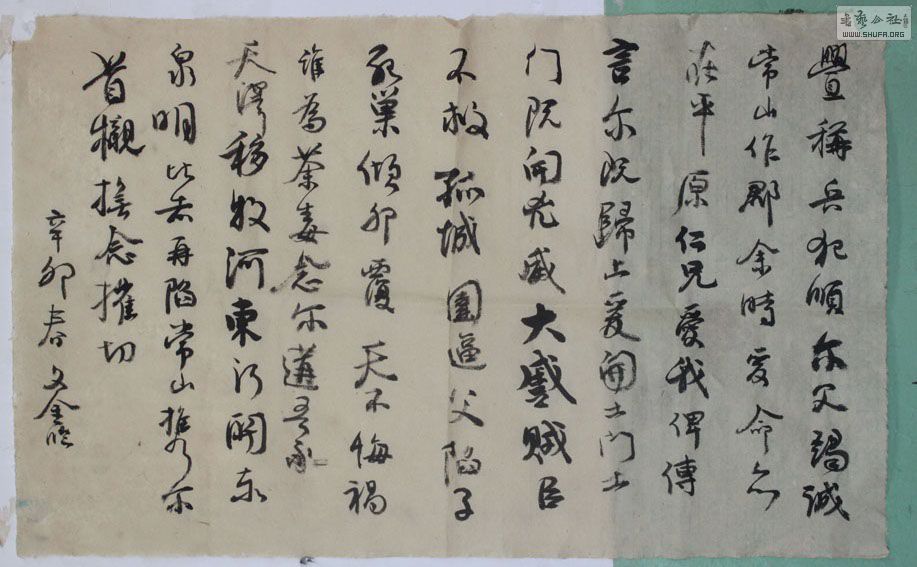 釁稱兵犯順尔父竭诚
常山作郡余時受命亦
在平原仁兄愛我俾傳
言尔既歸止爰開土门土
门既開凶威大蹙賊臣
不救孤城圍逼父陷子
死巢傾卵覆天不悔禍
誰為荼毒念尔遘吾承
天澤移牧河東河關尔
泉明比者再陷常山携尔
首櫬撫念摧切
辛卯春文金临
書藝公社
WWW.SHUFA.ORG